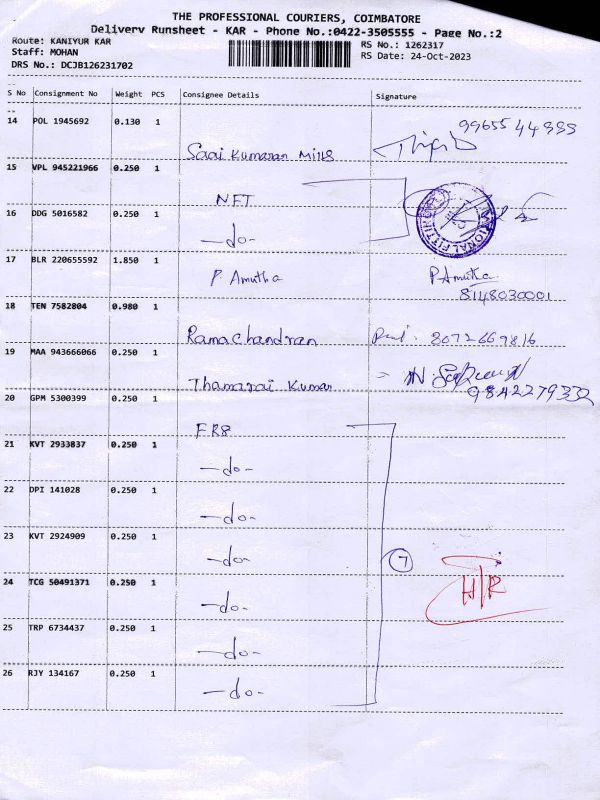 THE PROFESSIONAL COURIERS, COIMBATORE
Delivery Runsheet - KAR - Phone No.:0422-3505555 - Page No.:2
Route: KANIYUR KAR
RS No.: 1262317
Staff: MOHAN
RS Date: 24-Oct-2023
DRS No.: DCJB126231702
S No Consignment No Weight PCS Consignee Details Signature
14 POL 1945692 0.130 1
9965544999
Saai Kumaran Mills
15 VPL 945221966 0.250 1
NFT
16 DDG 5016582 0.250 1
-do-
17 BLR 220655592 1.850 1
P Amutha P Amutha
8148030001
18 TEN 7582804 0.980 1
Ramachandran 8072669816
19 MAA 943666066 0.250 1
Thamarai Kumar
9842279332
20 GPM 5300399 0.250 1
FR8
21 KVT 2933837 0.250 1
-do-
22 DPI 141028 0.250 1
-do-
23 KVT 2924909 0.250 1
-do- 7
24 TCG 50491371 0.250 1
-do- H/R
25 TRP 6734437 0.250 1
-do-
26 RJY 134167 0.250 1
-do-